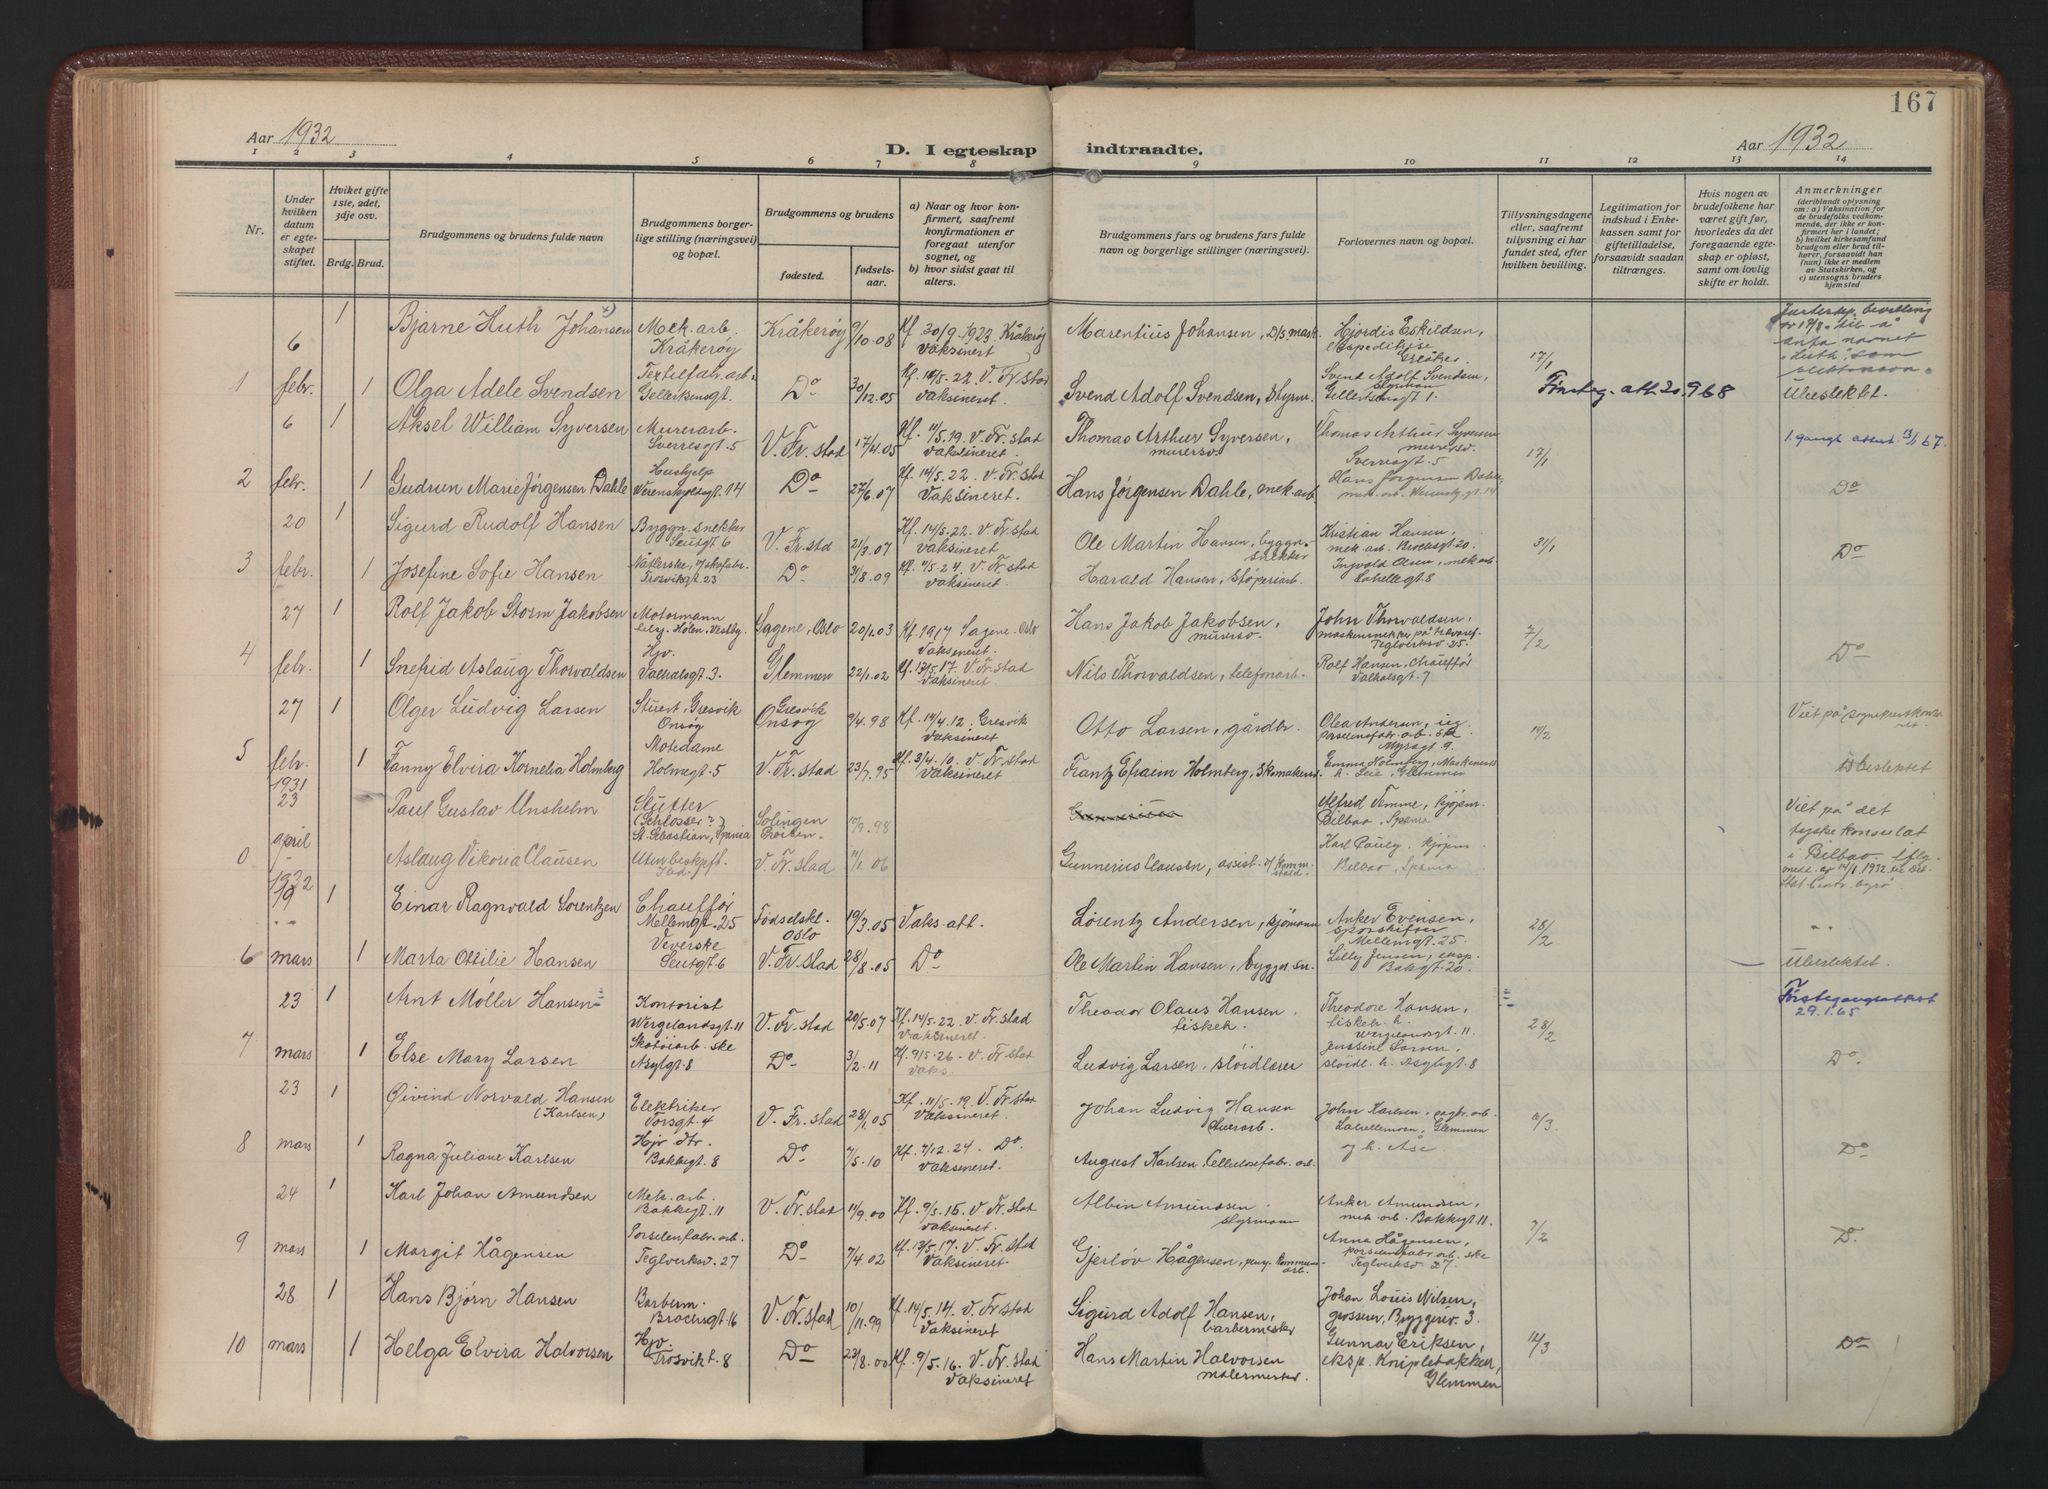 167
Aar 1932
D. I egteskap indtraadte.
Aar 1932
1 2 3 4 5 6 7 8 9 10 11 12 13 14
Nr.
Under hvilken datum er egteskapet stiftet.
Hviket gifte 1ste, 2det, 3dje osv.
Brdg. Brud.
Brudgommens og brudens fulde navn
Brudgommens borgerlige stilling (næringsvei) og bopæl.
Brudgommens og brudens
fødested.
fødselsaar.
a) Naar og hvor konfirmert, saafremt konfirmationen er foregaat utenfor sognet, og
b) hvor sidst gaat til alters.
Brudgommens fars og brudens fars fulde navn og borgerlige stillinger (næringsvei).
Forlovernes navn og bopæl.
Tillysningsdagene eller, saafremt tillysning ei har fundet sted, efter hvilken bevilling.
Legitimation for indskud i Enkekassen samt for giftetilladelse, forsaavidt saadan tiltrænges.
Hvis nogen av brudefolkene har været gift før, hvorledes da det foregaaende egteskap er opløst, samt om lovlig skifte er holdt.
Anmerkninger (deriblandt oplysning om: a) Vaksination for de brudefolks vedkommende, der ikke er konfirmert her i landet; b) hvilket kirkesamfund brudgom eller brud tilhører, forsaavidt han (hun) ikke er medlem av Statskirken, og c) utensogns bruders hjemsted
6 1 Bjarne Huth Johansen Mek. arb. Kråkerøy Kråkerøy 9/10.08 Kf. 30/9.1923 Kråkerøy Vaksinert Marentius Johansen, D/S mask. Hjordis Eskildsen, Greåker. 17/1
1 febr. 1 Olga Adele Svendsen Textilfabr. arb. Gellertsensgt. Do 30/12.05 V. Fr.stad Vaksineret. Svend Adolf Svendsen, Styrm. Svend Adolf Svendsen, styrman 1. Førsteg. att. 20.9.68 Ubeslektet.
6 1 Aksel William Syversen Murerarb. Sverresgt. 5 V. Fr.stad 17/4.05 Kf. 11/5.19. V. Fr.stad Vaksineret. Thomas Arthur Syversen, murersv. Thomas Arthur Syversen murersv. Sverresgt. 5 17/1 1. gangs attest 13/1 67.
2 febr. 1 Gudrun Marie Jørgensen Dahle Hushjelp Werenskjoldsgt. 14 Do 27/6.07 Kf. 14/5.22. V. Fr.stad Vaksineret. Hans Jørgensen Dahle, mek. arb. Hans Jørgensen Dahle, mek. arb. Do
20 1 Sigurd Rudolf Hansen Byggn. snekker Seutgt 6 V. Fr.std 21/3.07 Kf. 14/5.22. V. Fr.stad Vaksineret Ole Martin Hansen, byggn. snekker Kristian Hansen, mek. arb. Brochsgt. 20. 31/1
3 febr. 1 Josefine Sofie Hansen Nåtlerske, v/skofabr. Trosvikgt. 23 Do 31/8.09 Kf. 4/5.24. V. Fr.stad Vaksineret Harald Hansen, støperiarb. Ingvald Olsen, mek. arb. 8 Do
27 1 Rolf Jakob Storm Jakobsen Motormann Hølen, Vestby. Sagene, Oslo 20/1.03 Kf. 1917 Sagene, Oslo Vaksineret. Hans Jakob Jakobsen, murersv. John Thorvaldsen, Teglverksv. 25. 7/2
4 febr. 1 Snefrid Aslaug Thorvaldsen Hjv. Valhalsgt. 3. Glemmen 22/1.02 Kf. 13/5.17. V. Fr.stad Vaksineret. Nils Thorvaldsen, telefonarb. Rolf Hansen, chauffør Valhalsgt. 7 Do
27 1 Olger Ludvig Larsen Stuert, Gresvik Onsøy Gresvik Onsøy 9/4.98 Kf. 14/4.12. Gresvik Vaksineret Otto Larsen, gårdbr. Olea Andersen, porselensfabr. arb. Myragt 9. 14/2 Viet på sognekontoret
5 febr. 1 Fanny Elvira Kornelia Holmberg Motedame Holmegt. 5 V. Fr.stad 23/7.95 Kf. 3/4.10. V. Fr.stad Vaksineret. Frantz Efraim Holmberg, Skomakersv. Emma Holmberg, Glemmen Ubeslektet
1931
23 Paul Gustav Unshelm Slutter (Schlosser?) St. Sebastian, Solingen 10/9.98 Alfred Temme, kjøpm. Bilbao, Spania Viet på det tyske konsulat
0 april Aslaug Vikoria Clausen V. Fr.stad 11/1.06 Gunnerius Clausen, assist. Karl Pauly, kjøpm. Bilbao, Spania i Bilbao. Iflg. medd. av 14/1.1932 til det Stat. Centr. byrå.
1932
19 1 Einar Ragnvald Lorentzen Chauffør Mellemgt. 25 Fødselskl. Oslo 19/3.05 Vaks. att. Lorentz Andersen, sjømann Anker Evensen, sporskifter Mellemgt. 25. 28/2
6 mars 1 Marta Ottilie Hansen Veverske Seutgt. 6 V. Fr.stad 28/8.05 Do Ole Martin Hansen, byggn. sn. Lilly Jensen, eksp. Bakgt. 20. Ubeslektet.
23 1 Arnt Møller Hansen Kontorist Wergelandsgt. 11 V. Fr.stad 20/5.07 Kf. 14/5.22. V. Fr.stad Vaksineret Theodor Olaus Hansen, fiskeh. Theodore Hansen, fiskeh. h. Wergelandsgt. 11. 28/2 Førstegangsattest 29.1.65
7 mars 1 Else Mary Larsen Skotøiarb.ske Asylgt. 8 Do 3/2.11 Kf. 9/5.26. V. Fr.stad Vaks. Ludvig Larsen, sløidlærer Larsen, sløidl. h. Asylgt. 8 Do.
23 1 Øivind Norvald Hansen (Karlsen) Elektriker Torsgt. 4 V. Fr.stad 28/1.05 Kf. 11/5.19. V. Fr.stad Vaksineret Johan Ludvig Hansen John Karlsen, Glemmen 6/3
8 mars 1 Ragna Juliane Karlsen Hjv. dtr. Bakkegt. 8 Do 7/5.10 Kf. 7/12.24. Do. Vaksineret August Karlsen, Cellulosefabr. arb. og h. Åse Do
24 1 Karl Johan Amundsen Mek. arb. Bakkegt. 11 V. Fr.stad 11/9.00 Kf. 9/5.15. V. Fr.stad Vaksineret. Albin Amundsen. styrmann Anker Amundsen, mek. arb. Bakkegt 11. 7/2
9 mars 1 Margit Hågensen Porselenfabr. arb. Teglverksv. 27 Do 7/4.02 Kf. 13/5.17. V. Fr.stad Vaksineret. Gjerløv Hågensen, Anna Hågensen, porselensfabr. arb.ske Teglverksv 27. Do.
28 1 Hans Bjørn Hansen Barberm. Brochsgt. 16 V. Fr.stad 10/11.99 Kf. 14/5.14. V. Fr.stad Vaksineret Sigurd Adolf Hansen, barbermester Johan Louis Nilsen, grosserer, Bryggeriv. 3. 12/3
10 mars 1 Helga Elvira Halvorsen Hjv. Trosvikt. 8 Do 23/8.00 Kf. 9/5.16. V. Fr.stad Vaksineret Hans Martin Halvorsen malermester Gunnar Eriksen, eksp. Kniplebakken, Glemmen Do